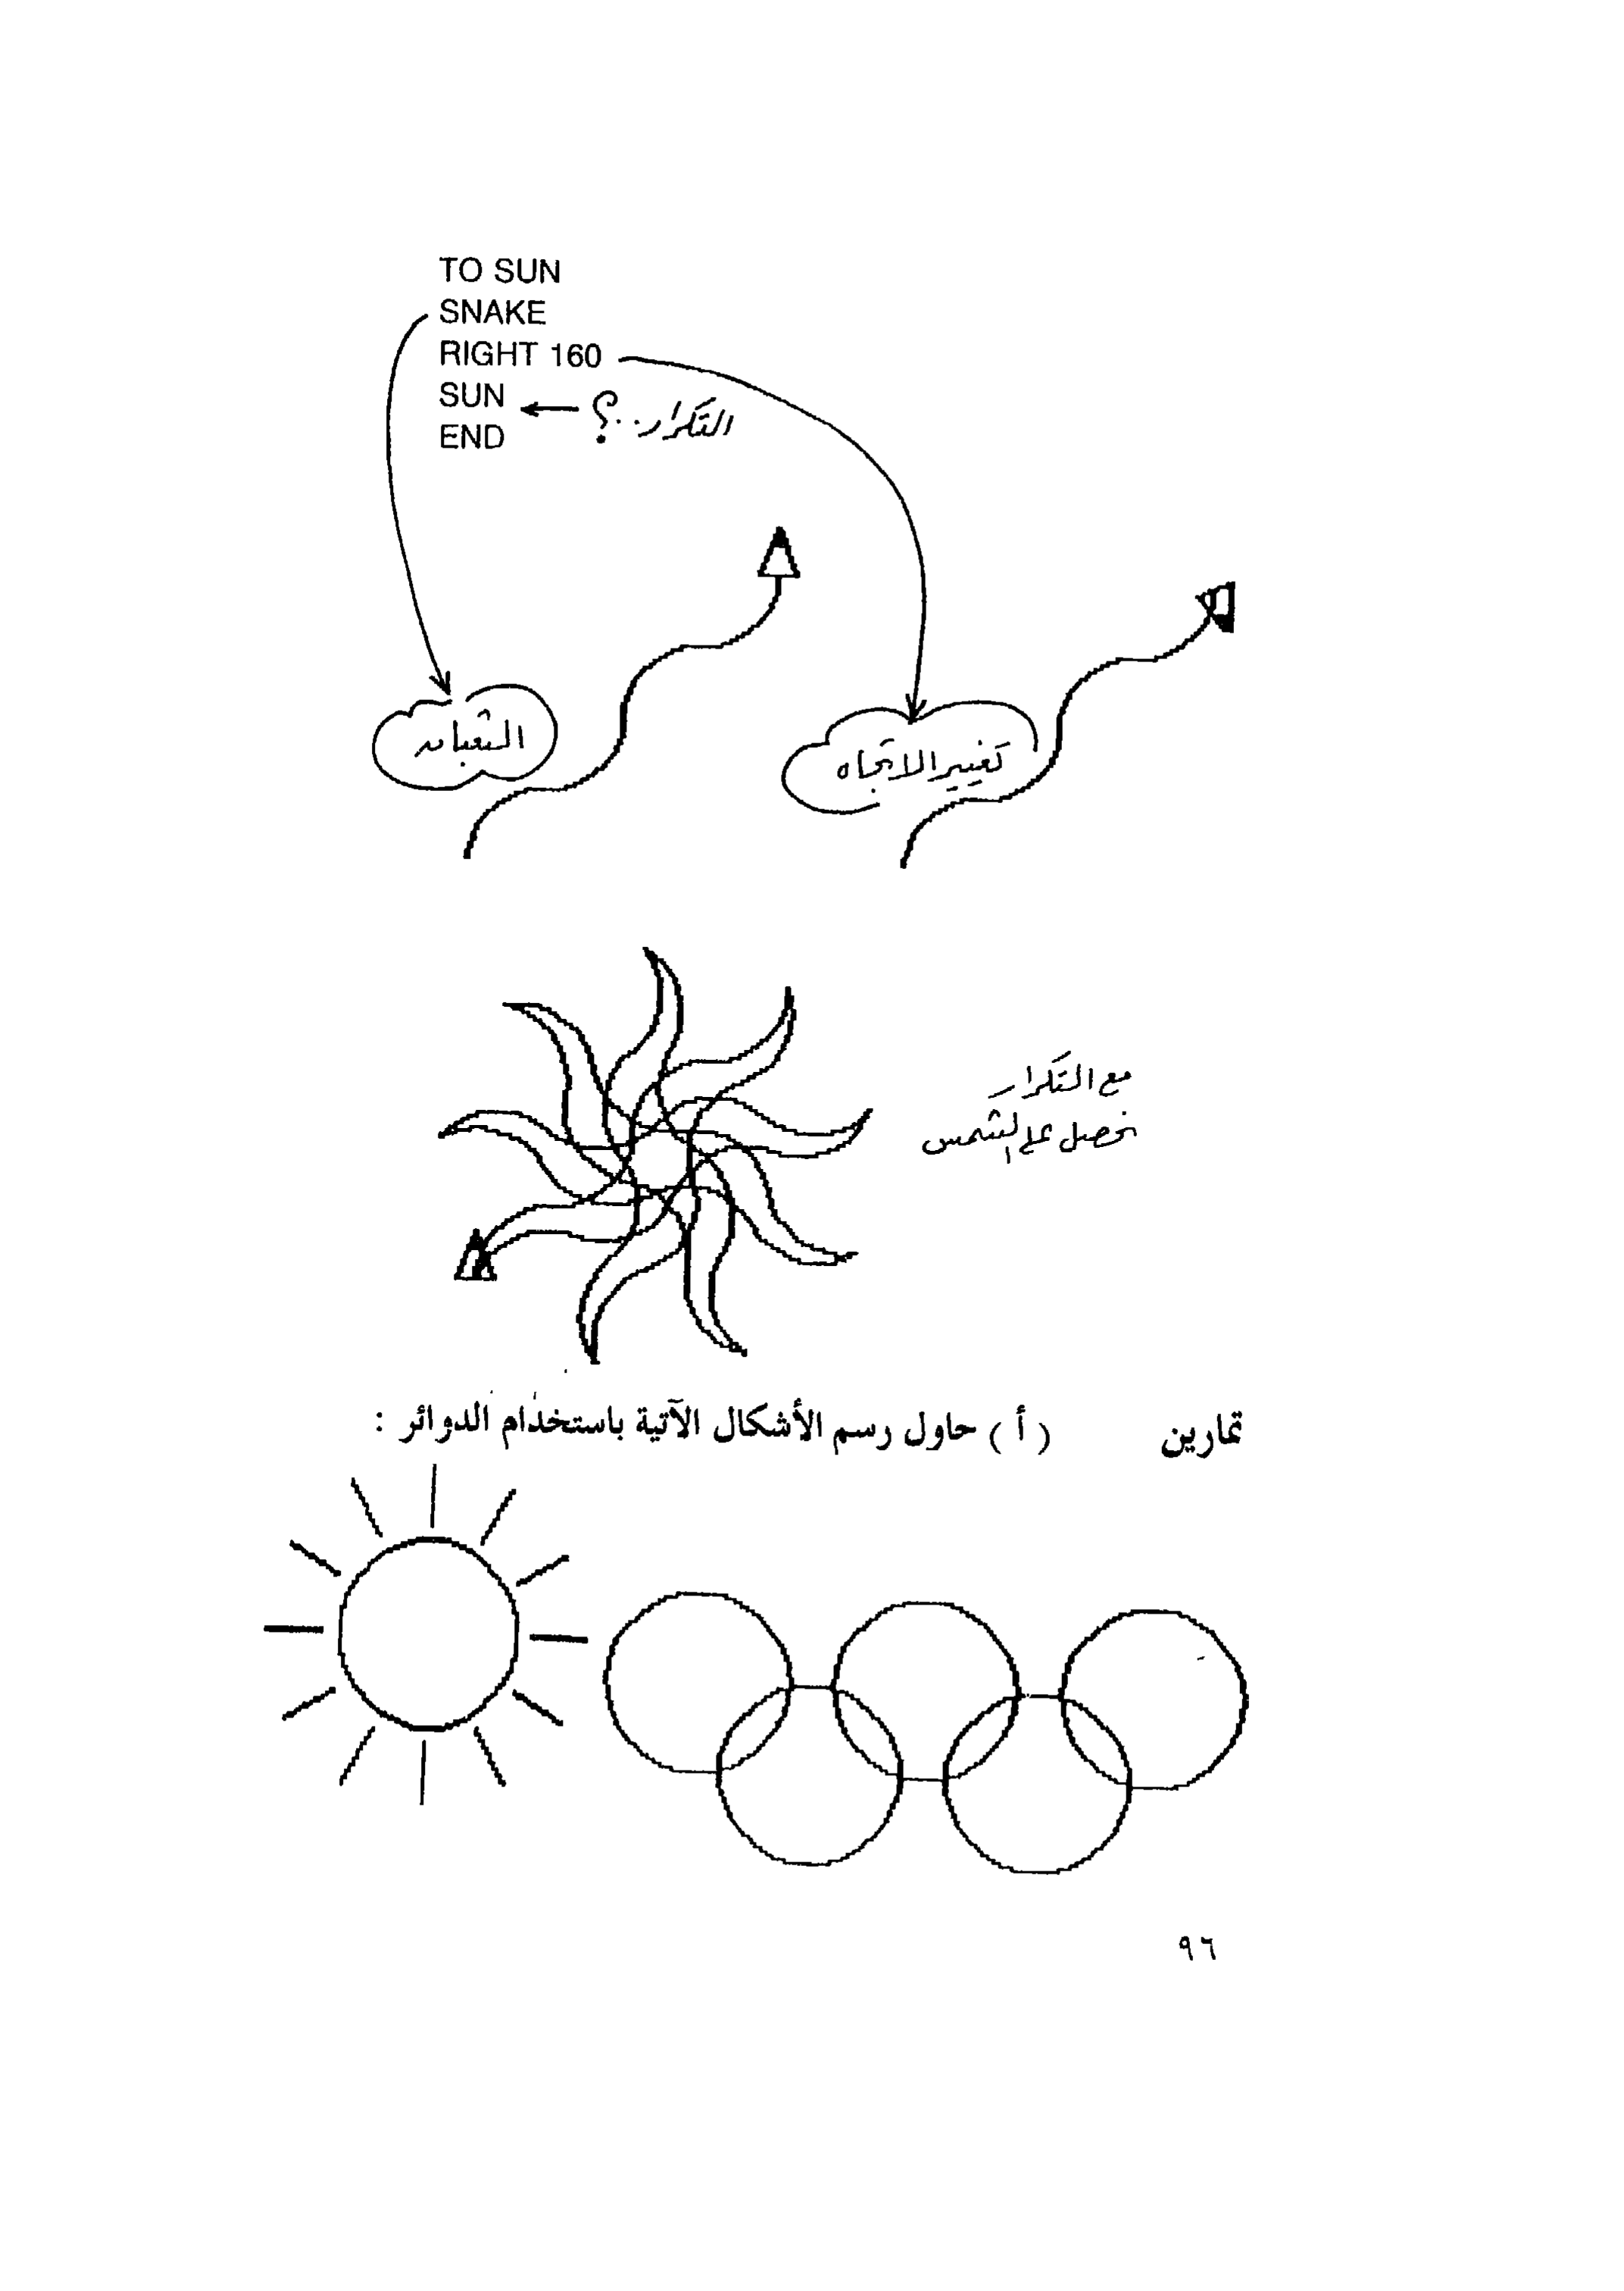 TO SUN
SNAKE
RIGHT 160
SUN
التكرار..؟
END
الثعبان
تغيير الاتجاه
مع التكرار
نحصل على الشمس
تمارين ( أ ) حاول رسم الأشكال الآتية باستخدام الدوائر :
٩٦